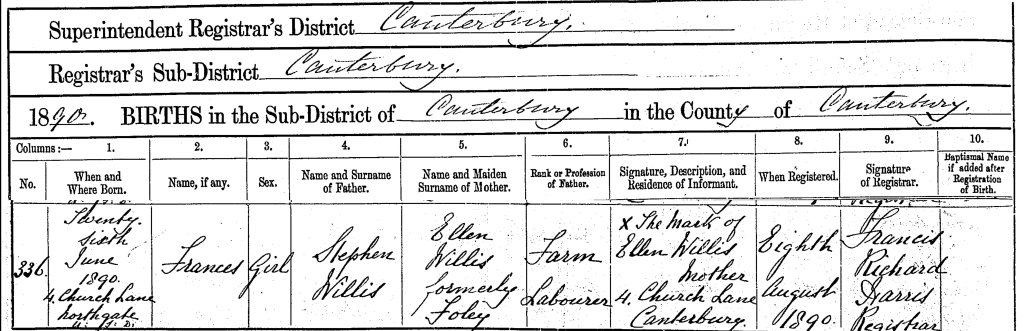 Superintendent Registrar's District Canterbury.
Registrar's Sub-District Canterbury.
1890. BIRTHS in the Sub-District of Canterbury in the County of Canterbury.
Columns :— 1. 2. 3. 4. 5. 6. 7. 8. 9. 10.
No. When and Where Born. Name, if any. Sex. Name and Surname of Father. Name and Maiden Surname of Mother. Rank or Profession of Father. Signature, Description, and Residence of Informant. When Registered. Signature of Registrar. Baptismal Name if added after Registration of Birth.
336.
Twenty
sixth
June
1890.
4, Church Lane
Northgate
Frances
Girl
Stephen
Willis
Ellen
Willis
formerly
Foley
Farm
Labourer
X The Mark of
Ellen Willis
Mother
4. Church Lane
Canterbury.
Eighth
August
1890.
Francis
Richard
Harris
Registrar